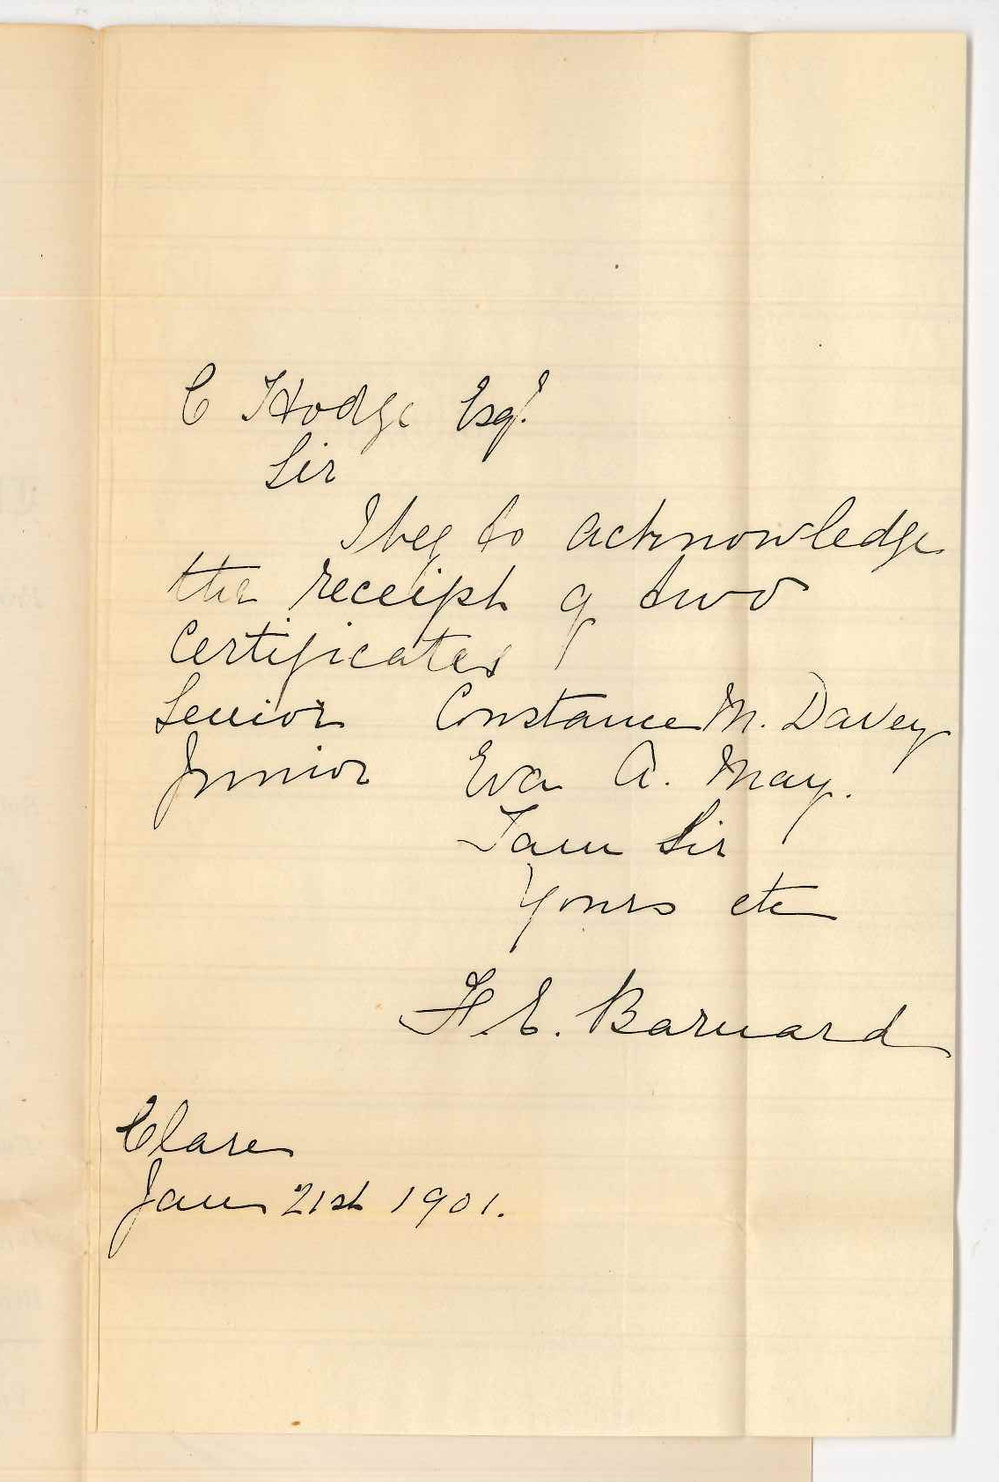 C Hodge Esqr.
Sir
I beg to acknowledge
the receipt of two
Certificates
Senior Constance M. Davey
Junior Eva A. May.
I am Sir
Yours etc
F. E. Barnard
Clare
Jan 21st 1901.